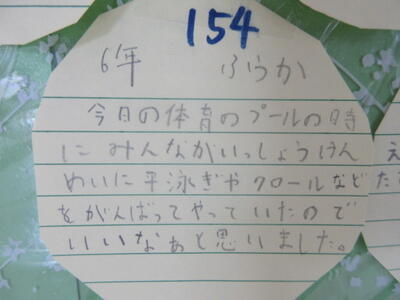 154
6年 ふうか
今日の体育のプールの時
にみんながいっしょうけん
めいに平泳ぎやクロールなど
をがんばってやっていたので
いいなぁと思いました。
え
た